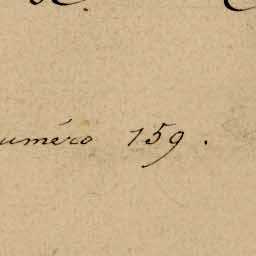 uméro 159.